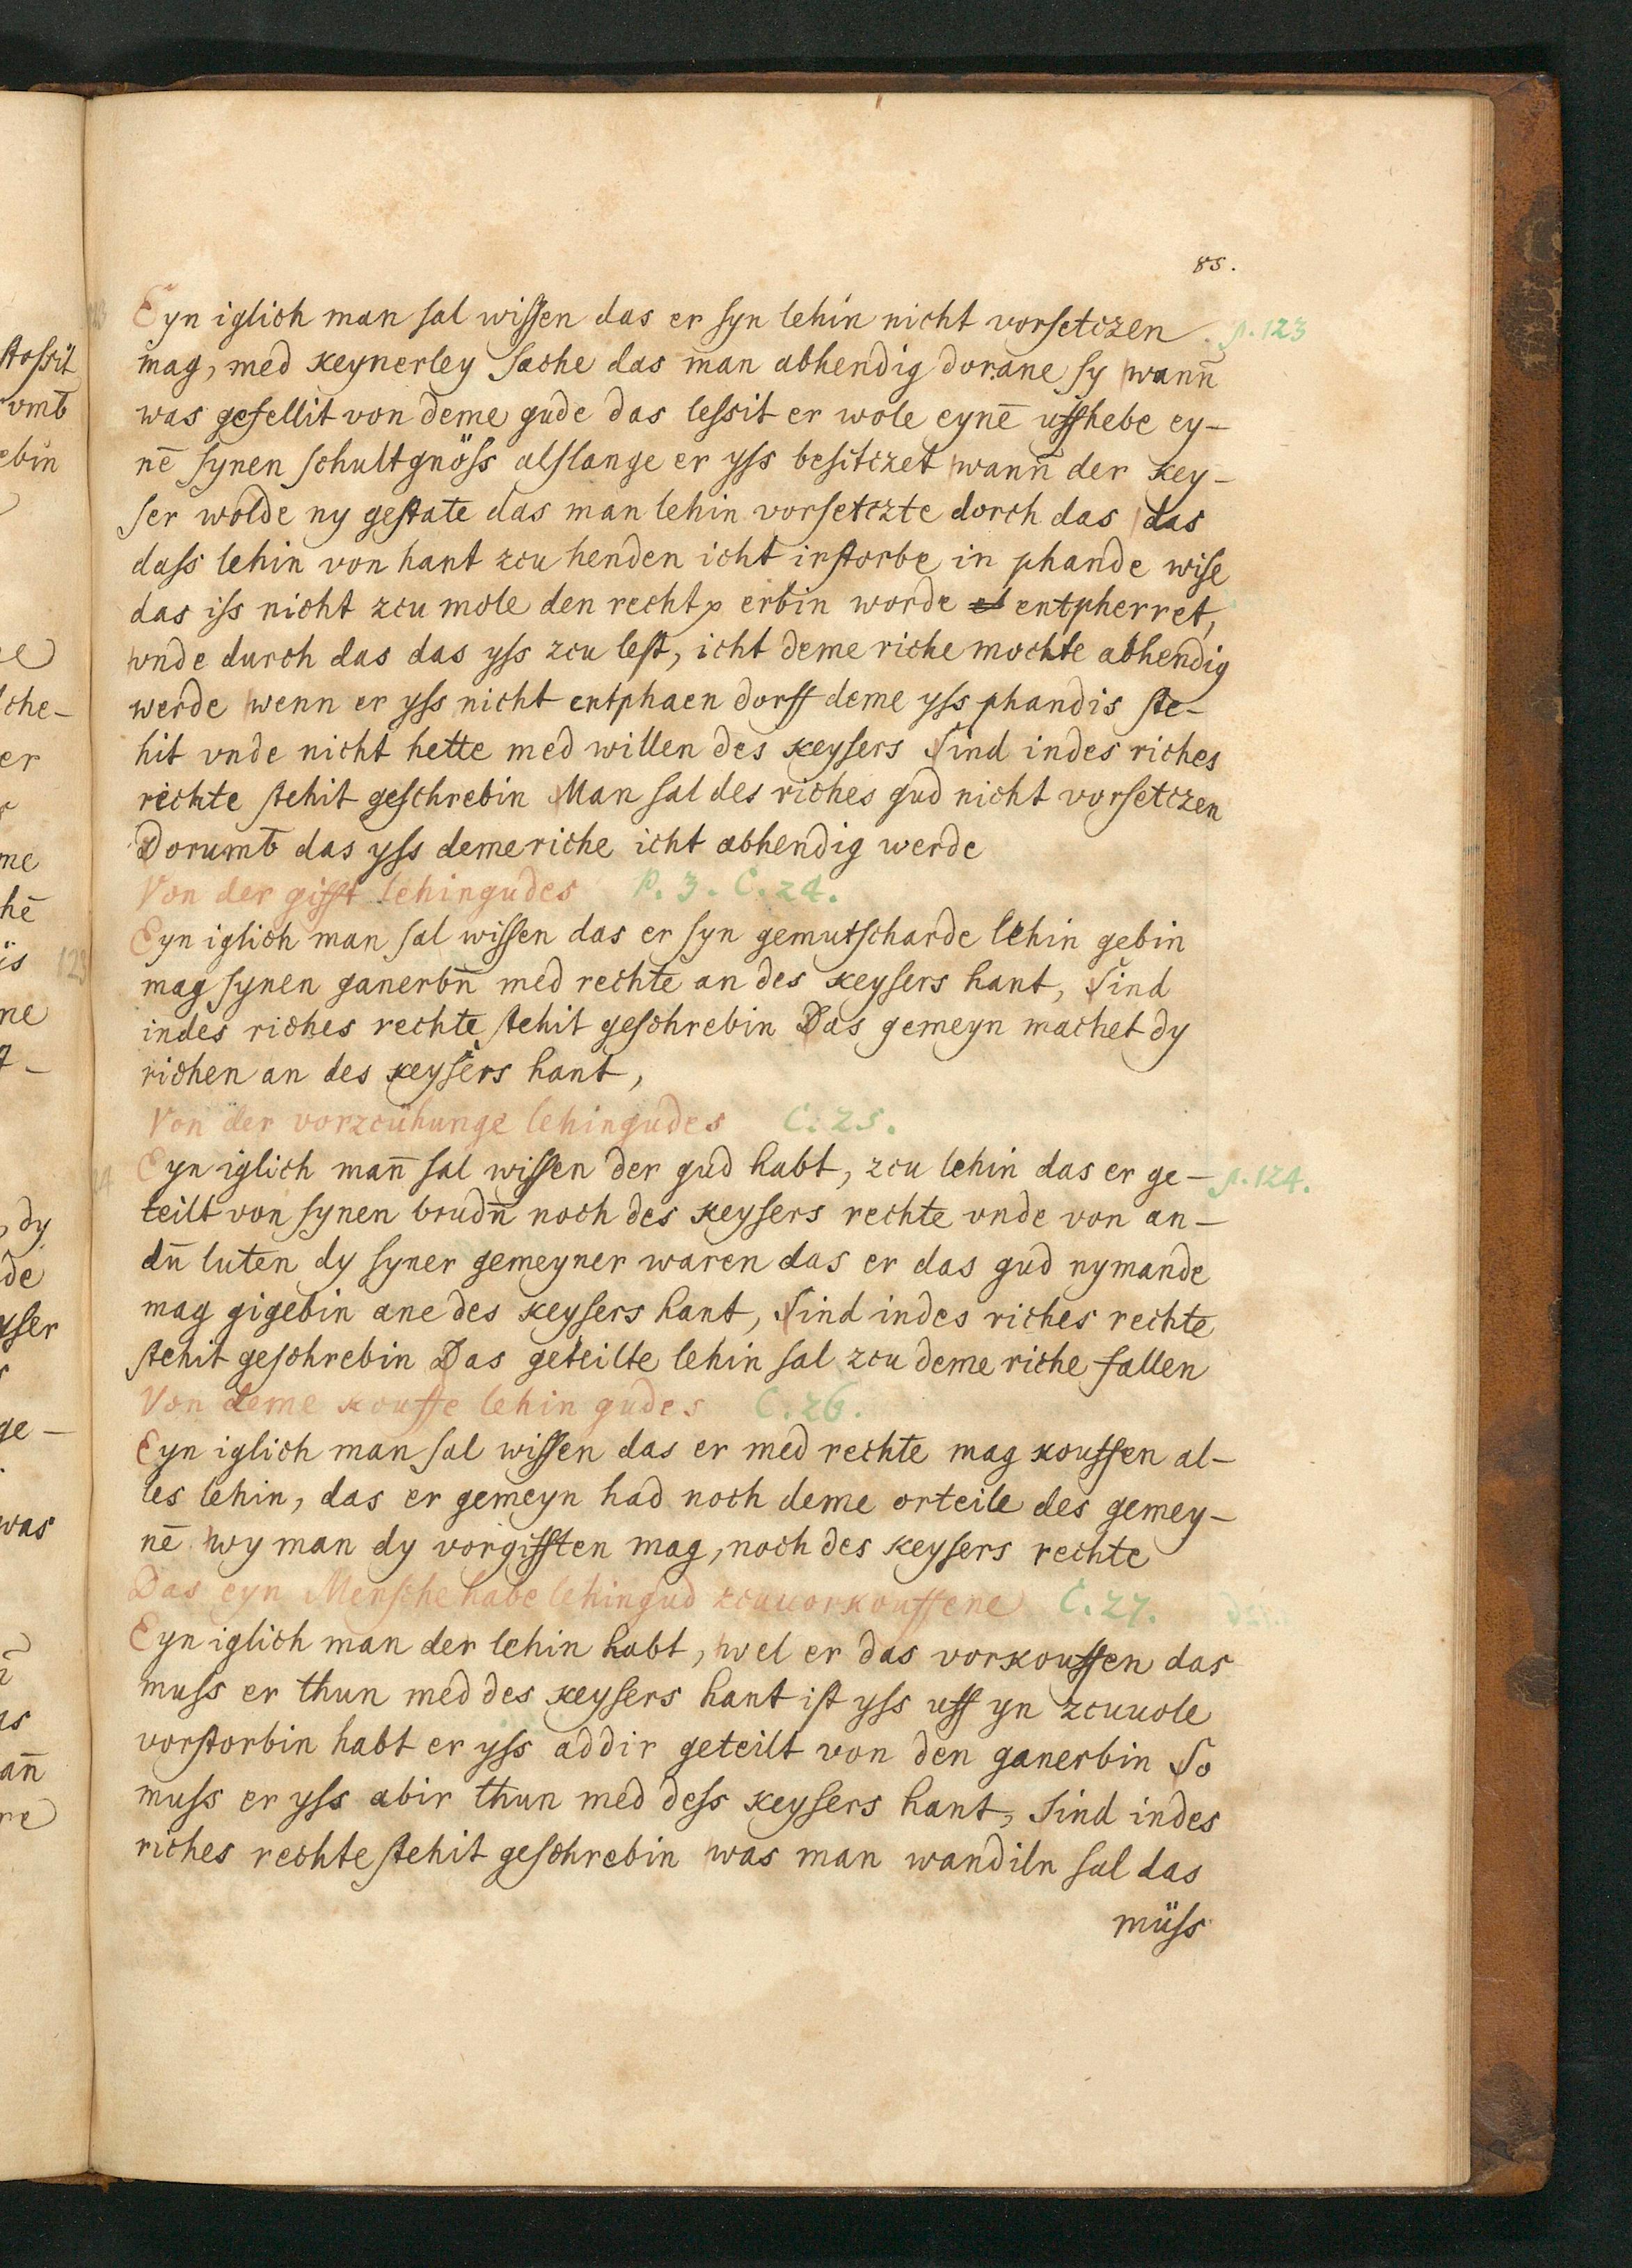 85.
Eyn iglich man sal wissen das er syn lehin nicht vorsetczen p. 123
mag, med keynerley sache das man abhendig dorane sy wann̄
was gefellit von deme gude das lessit er wole eynē uffhebe ey-
nē synen schultgnöss alslange er yss besitczet wann̄ der key-
ser wolde ny gestate das man lehin vorsetczte dorch das das
dass lehin von hant zcu henden icht irstorbe in phande wise
das iss nicht zcu mole den recht erbin worde entpherret,
vnde durch das das yss zcu lest, icht deme riche mochte abhendig
werde wenn er yss nicht entphaen dorff deme yss phandis ste-
hit vnde nicht hette med willen des keysers Sind indes riches
richte stehit geschrebin Man sal des riches gud nicht vorsetczen
Dorumb̄ das yss deme riche icht abhendig werde
Von der gifft lehingudes P. 3. C. 24.
Eyn iglich man sal wissen das er syn gemutscharde lehin gebin
mag synen ganerbn̄ med rechte an des keysers hant, Sind
indes riches rechte stehit geschrebin Das gemeyn machet dy
richen an des keysers hant,
Von der vorzcühunge lehingudes C. 25.
Eyn iglich man̄ sal wissen der gud habt, zcu lehin das er ge- p. 124.
teilt von synen brudn̄ noch des keysers rechte vnde von an-
dn̄ luten dy syner gemeyner waren das er das gud nymande
mag gigebin ane des keysers hant, Sind indes riches rechte
stehit geschrebin Das geteilte lehin sal zcu deme riche fallen
Von deme kouffe lehin gudes C. 26.
Eyn iglich man sal wissen das er med rechte mag kouffen al-
les lehin, das er gemeyn had noch deme orteile des gemey-
nē wy man dy vorgifften mag, noch des keysers rechte
Das eyn Mensche habe lehingud zcuuorkouffene C. 27.
Eyn iglich man der lehin habt, wel er das vorkouffen das
muss er thun med des keysers hant ist yss uff yn zcuuole
vorstorbin habt er yss addir geteilt von den ganerbin So
muss er yss abir thun med dess keysers hant, Sind indes
riches rechte stehit geschrebin was man wandiln sal das
müss